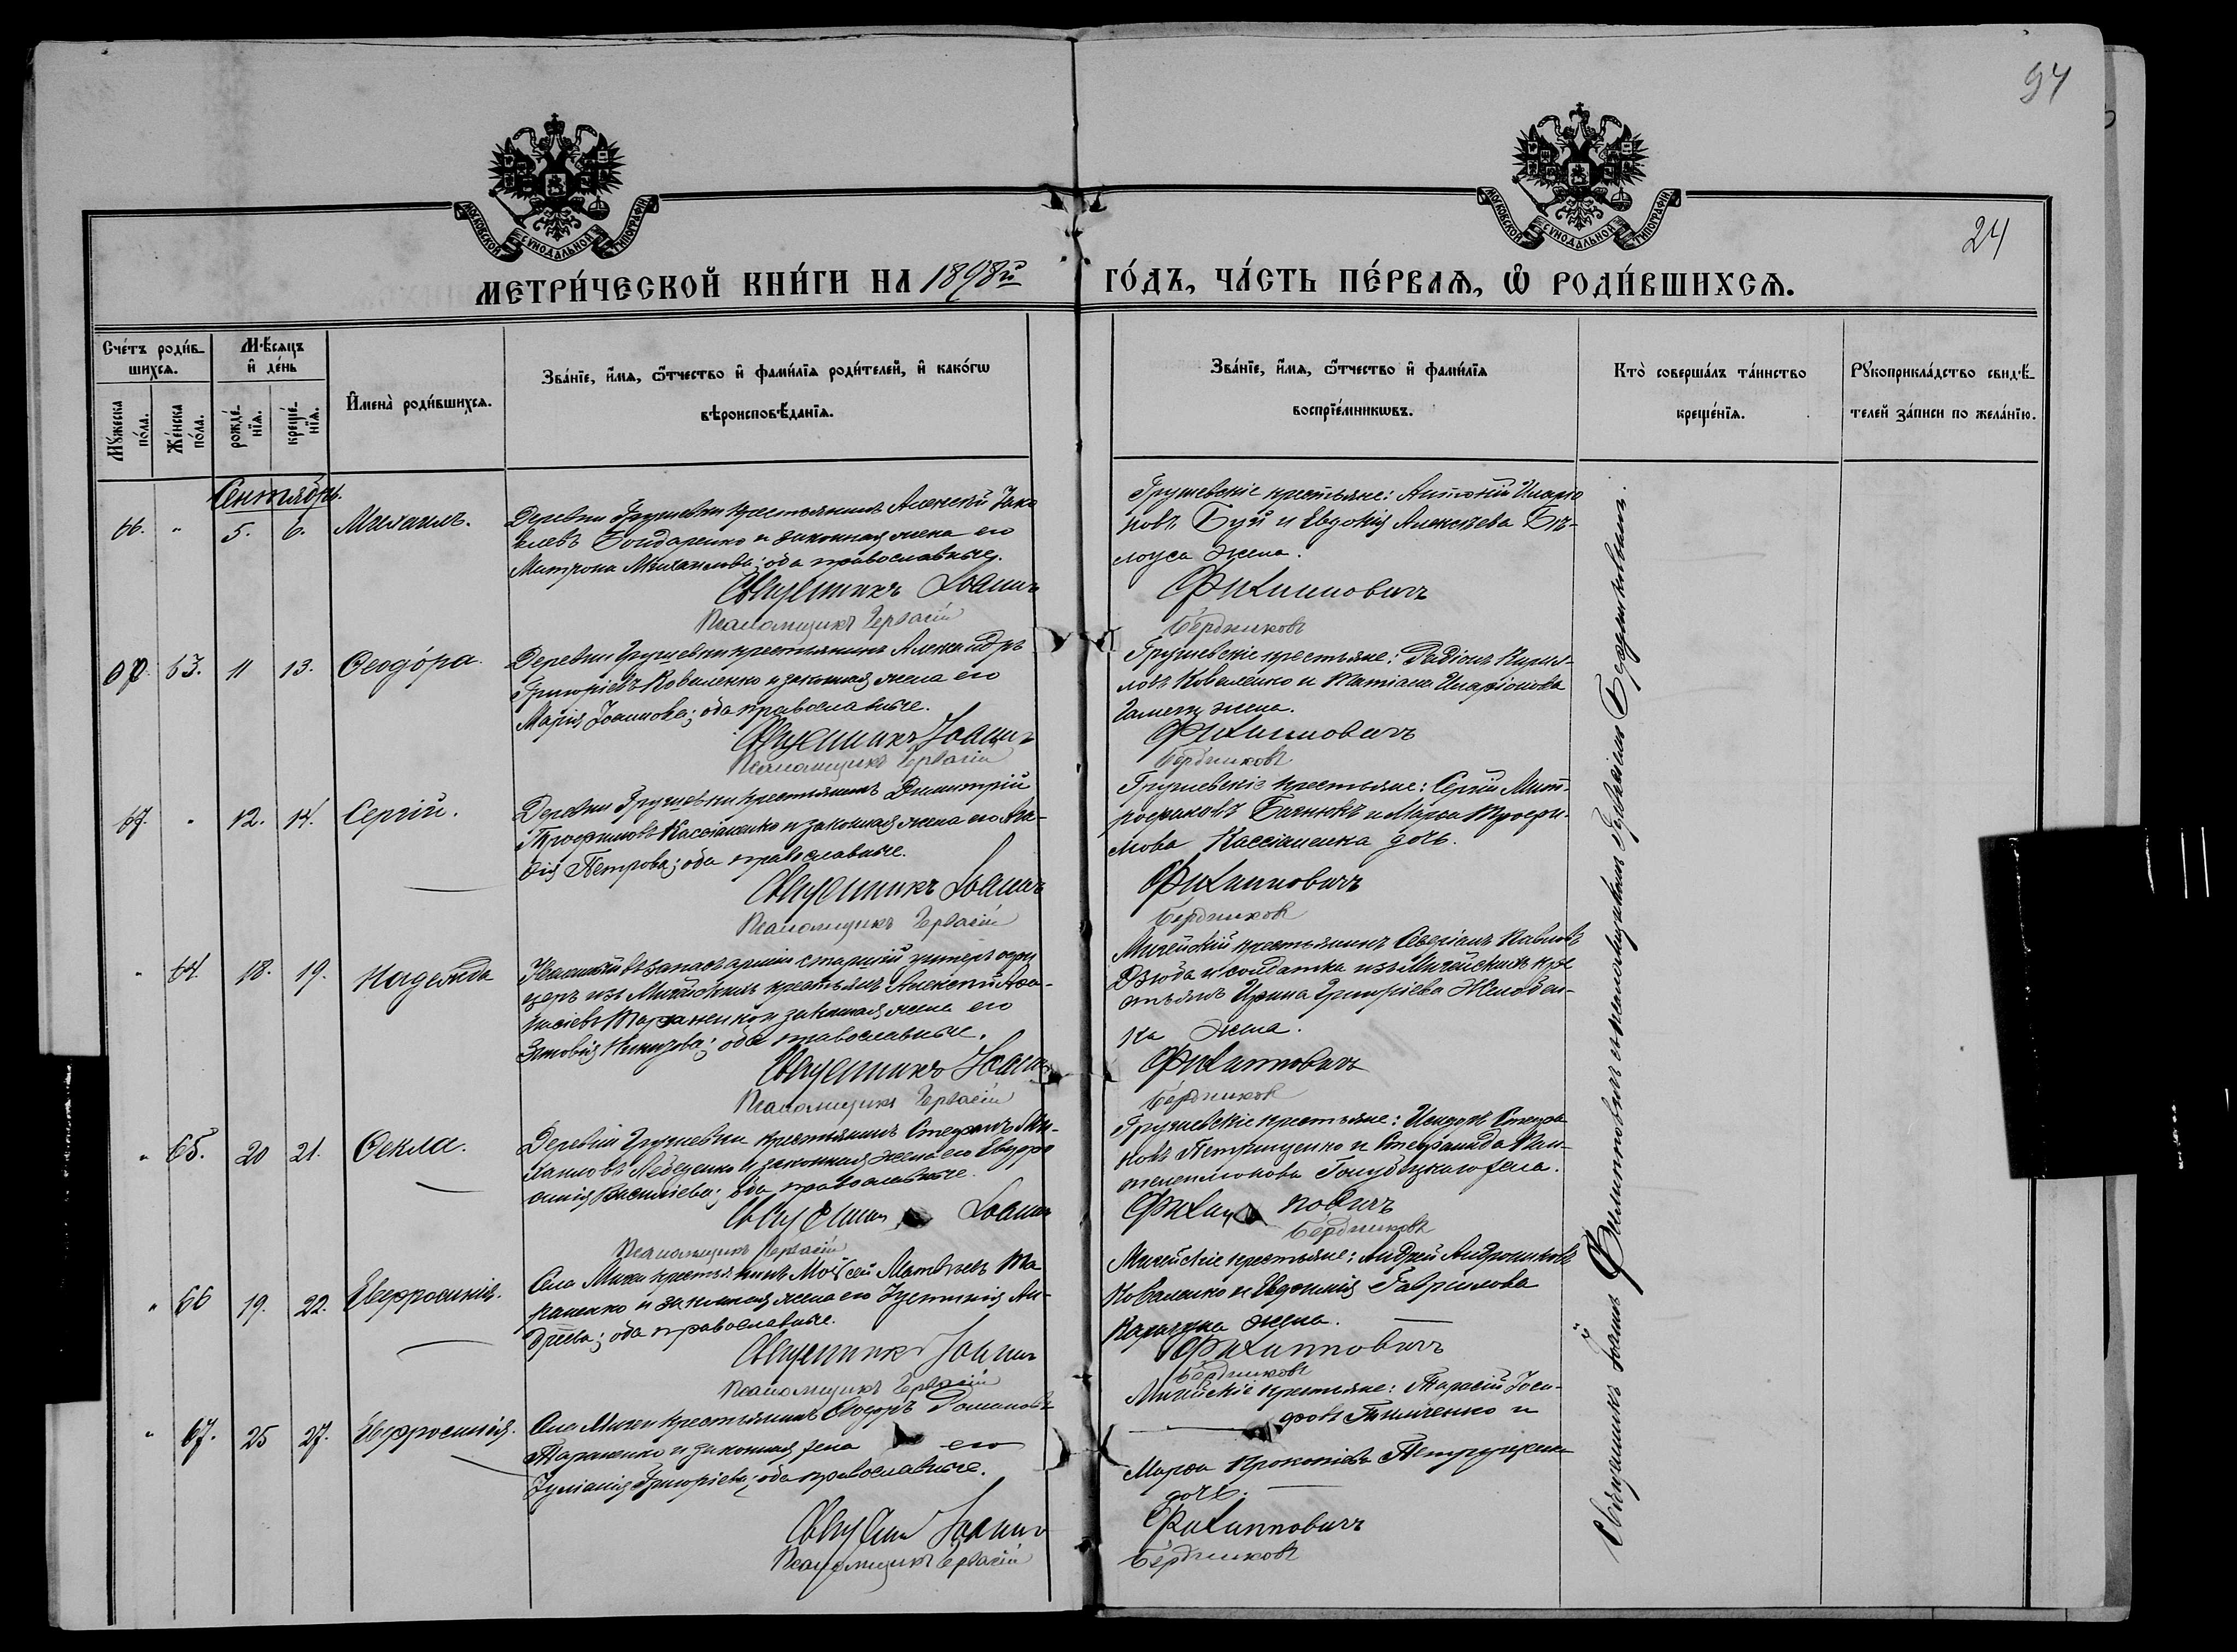 94
24
МОСКОВСКОЙ СѴНОДАЛЬНОЙ ТИПОГРАФІИ
МОСКОВСКОЙ СѴНОДАЛЬНОЙ ТИПОГРАФІИ
МЕТРИ́ЧЕСКОЙ КНИ́ГИ НА 1898й ГО́ДЪ, ЧА́СТЬ ПЕ́РВАѦ, Ѽ РОДИ́ВШИХСѦ.
Сче́тъ роди́в-
шихсѧ.
Мꙋ́жеска
по́ла.
Же́нска
по́ла.
Мѣ́сѧцъ
и҆ де́нь
рожде́-
нїѧ.
креще́-
нїѧ.
И҆мена̀ роди́вшихсѧ.
Зва́нїе, и҆́мѧ, ѻ҆́тчество и҆ фами́лїѧ роди́телей, и҆ како́гѡ
вѣроисповѣ́данїѧ.
Зва́нїе, и҆́мѧ, ѻ҆́тчество и҆ фами́лїѧ
воспрїе́мникѡвъ.
Кто̀ соверша́лъ та́инство
креще́нїѧ.
Рꙋкоприкла́дство свидѣ́-
телей за́писи по жела́нїю.
Сентябрь.
66. " 5. 6. Михаилъ.
Деревни Грушевки крестьянинъ Алексѣй Іако
влевъ Бондаренко и законная жена его
Матрона Михаилова; оба православные.
Священникъ Іоаннъ
Псаломщикъ Гервасій
Грушевскіе крестьяне: Антоній Иларіо
новъ Буй и Евдокія Алексѣева Бѣ-
лоуса жена.
Филипповичъ
Бердниковъ
63. 11 13. Ѳеодора.
Деревни Грушевки крестьянинъ Александръ
Григоріевъ Коваленко и законная жена его
Марія Іоаннова; оба православные.
Священникъ Іоаннъ
Псаломщикъ Гервасій
Грушевскіе крестьяне: Родіонъ Кирил-
ловъ Коваленко и Татіана Иларіонова
жена.
Филипповичъ
Бердниковъ
67. " 12. 14. Сергій.
Деревни Грушевки крестьянинъ Димитрій
Трофимовъ Кассіаненко и законная жена его
Петрова; оба православные.
Священникъ Іоаннъ
Псаломщикъ Гервасій
Грушевскіе крестьяне: Сергій Мит-
рофановъ и Марѳа Трофи-
мова Кассіаненка дочь.
Филипповичъ
Бердниковъ
" 64. 18. 19. Надежда
въ запасъ арміи старшій унтеръ офи
церъ изъ Мичійскихъ крестьянъ Алексѣй Аѳа-
насіевъ Тараненко и законная жена его
Зиновія оба православные.
Священникъ Іоаннъ
Псаломщикъ Гервасій
Мичійскій крестьянинъ Северіанъ Павловъ
Дзюба и солдатка изъ Мичійскихъ кре
стьянъ Ирина Григоріева
ка жена.
Филипповичъ
Бердниковъ
" 65. 20 21. Ѳекла.
Деревни Грушевки крестьянинъ Стефанъ Ми-
хаиловъ Лебеденко и законная жена его Евфро
синія Василіева; оба православные.
Іоаннъ
Псаломщикъ Гервасій
Грушевскіе крестьяне: Стефа
новъ Петрищенко и Стефанида Пан-
телеимонова Голубицкаго жена.
Бердниковъ
" 66 19. 22. Евфросинія.
Села Мичи крестьянинъ Моѵсей Матвѣевъ Та
раненко и законная жена его Іустинія Ан-
дреева; оба православные.
Священникъ Іоаннъ
Псаломщикъ Гервасій
Мичійскіе крестьяне: Андрей Андрониковъ
Коваленко и Евдокія Гаврилова
жена.
Филипповичъ
Бердниковъ
" 67. 25 27. Евфросинія.
Села Мичи крестьянинъ Ѳеодоръ Романовъ
Тараненко и законная жена его
Іуліанія Григоріева; оба православные.
Іоаннъ
Псаломщикъ Гервасій
Мичійскіе крестьяне: Тарасій Іоси-
фовъ и
Марѳа Прокопіева
дочь.
Филипповичъ
Бердниковъ
Священникъ Іоаннъ Филипповичъ съ псаломщикомъ Гервасіемъ Бердниковымъ.